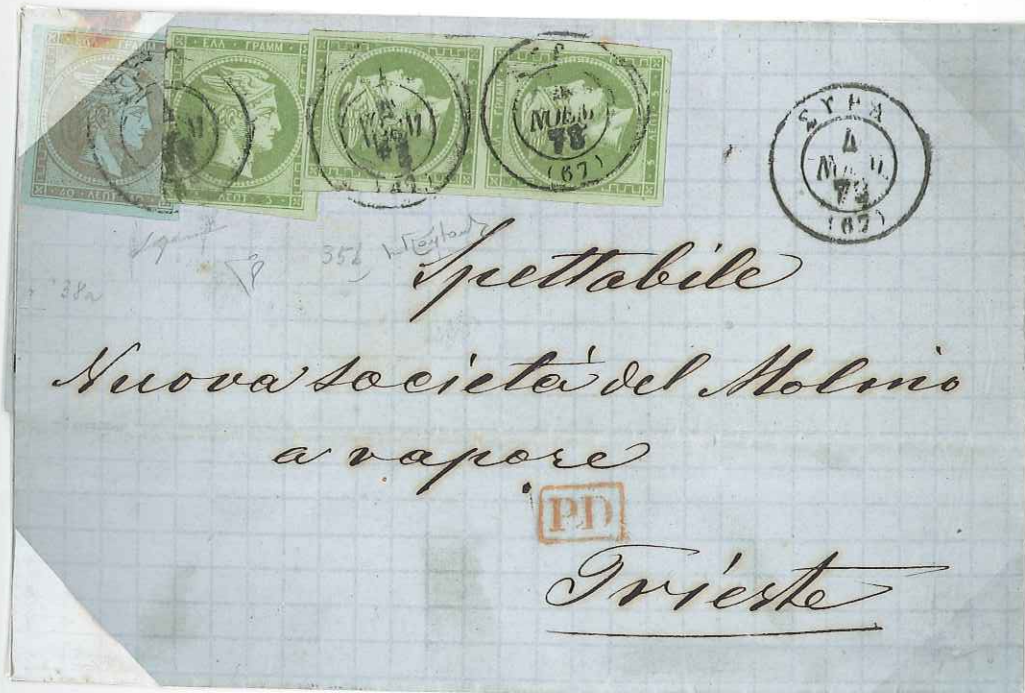 ΕΛΛ ΓΡΑΜΜ
40 ΛΕΠΤ
5 ΛΕΠΤ
ΝΟΕΜ
78
(67)
ΣΥΡΑ
4
(67)
35b
38a
Spettabile
Nuova società del Molino
a vapore
PD
Trieste